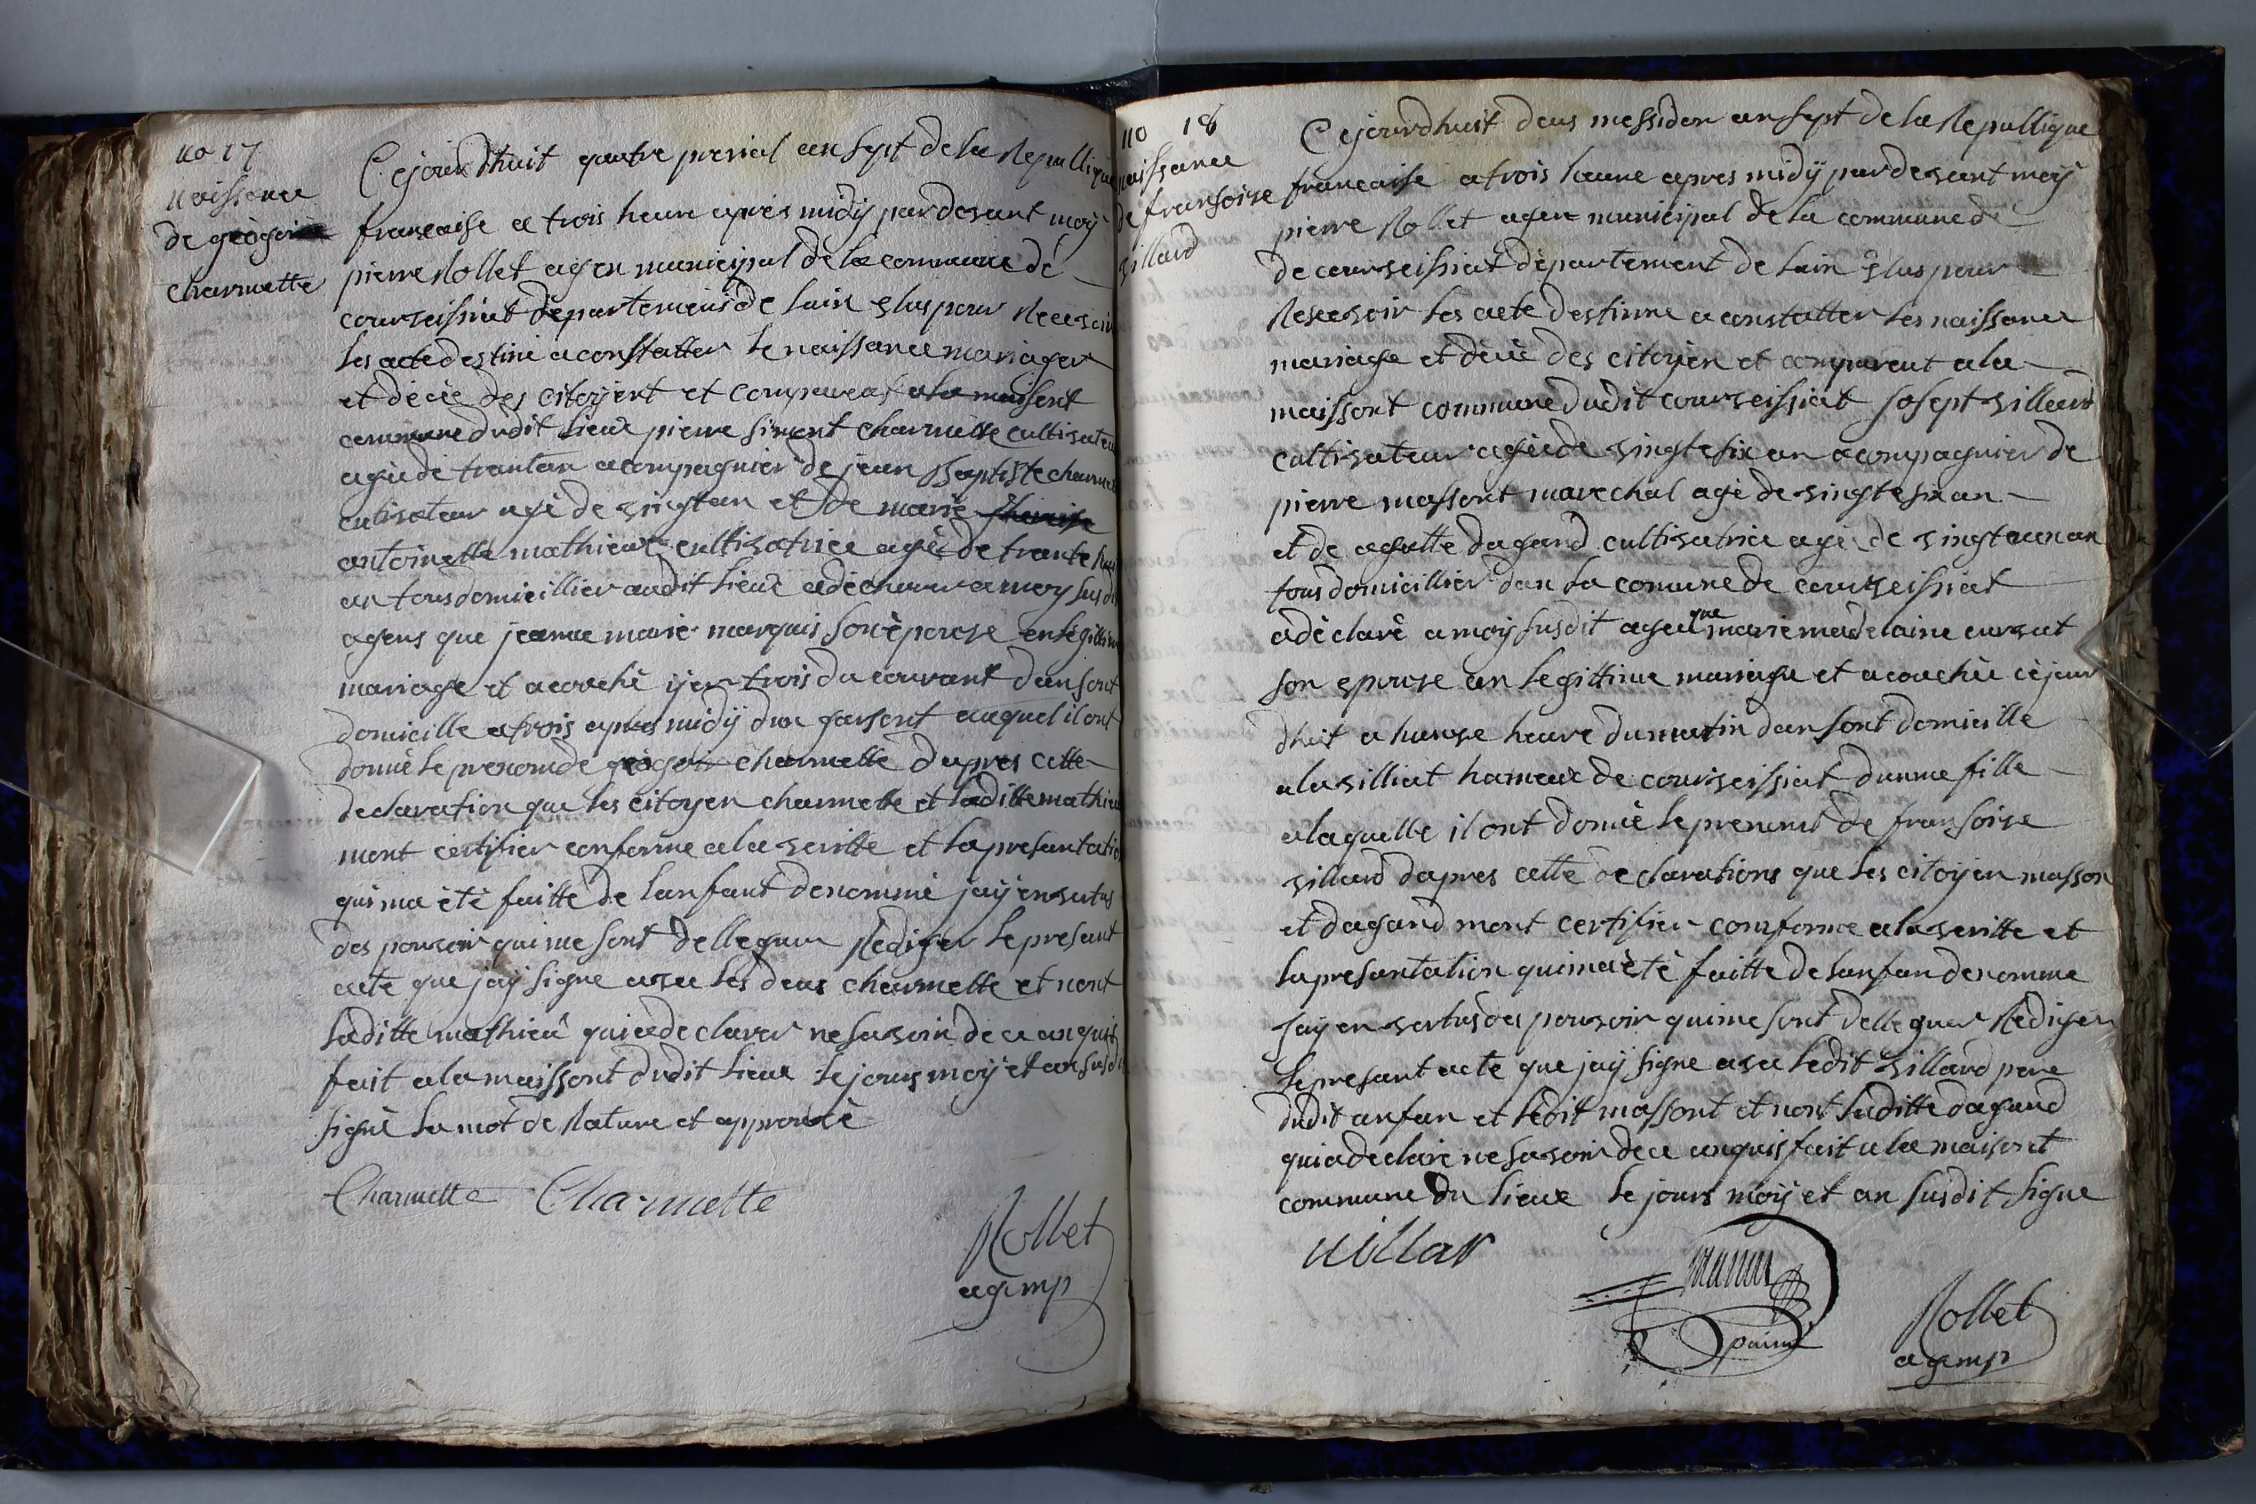 no 17
naissance
de grégoire
charmette
Cejourdhuit quatre prerial an sept de la Republique
francaise a trois heure apres midÿ pardevant moÿ
pierre Rollet agen municipal de la commune de
courveissiat département de lain elus pour Recevoir
les acte destiné a constatter le naissance mariager
et décée des citoÿent et comparent a la maisont
commune dudit lieux pierre simont charmette cultivateur
agéé de trantan acompagnier de jean Baptiste charmette
cultivateur agé de vingtan et de marie
antoinette mathieux cultivatrice agéé de trante
an tous domicillier audit lieux a déclarer a moy susdit
agens que jeanne marie marquis son épouse en légittime
mariage et acouché ÿer trois du courant dan sont
domicille a trois apres midÿ dun garsont auquel il ont
donné le prenom de grégoir charmette dapres cette
declaration que les citoyen charmette et laditte mathieu
mont certifier conforme a la veritte et la presantation
qui ma été faitte de lanfant denommé jaÿ en vertus
des pouvoir qui me sont delleguer Rediger le presant
acte que jaÿ signe avec les deux charmette et nont
laditte mathieu qui a declarer ne savoir de ce anquis
fait a la maissont dudit lieux le jours moÿ et an susdit
signé le mot de Rature et approuvé
Charmette Charmette
Rollet
agemp
no 18
naissance
de fransoise
villard
Cejourdhuit deus messidor an sept de la Republique
francaise a trois heure apres midÿ pardevant moÿ
pierre Rollet agen municipal de la commune de
de courveissiat département de lain élus pour
Resevoir les acte destinne a constatter les naissance
mariage et décé des citoÿen et comparent a la
maissont commune dudit courveissiat joseph villard
cultivateur agéé de vingtesix an acompagnier de
pierre massont marechal agé de vingtesix an
et de agatte dagand cultivatrice agé de vingt an
tous domicillier dan la comune de courveissiat
a déclaré a moÿ susdit agent que marie madelaine curvat
son epouse an legittime mariage et acouchéé céjour
dhuit a hunse heure du matin dan sont domicille
a la villiat hameux de courveissiat dunne fille
a laquelle il ont donné le prenomt de fransoise
villard dapres cette declarations que les citoÿen masson
et dagand mont certifier conforme a la veritte et
la presantation qui ma été faitte de lanfan denomme
jaÿ en vertus des pouvoir qui me sont delleguer Rediger
le presant acte que jaÿ signe avec ledit villard pere
dudit anfan et ledit massont et nont laditte dagand
qui a declaré ne savoir de ce anquis fait a la maisont
commune du lieux le jours moÿ et an susdit signe
villar
Rollet
agemp